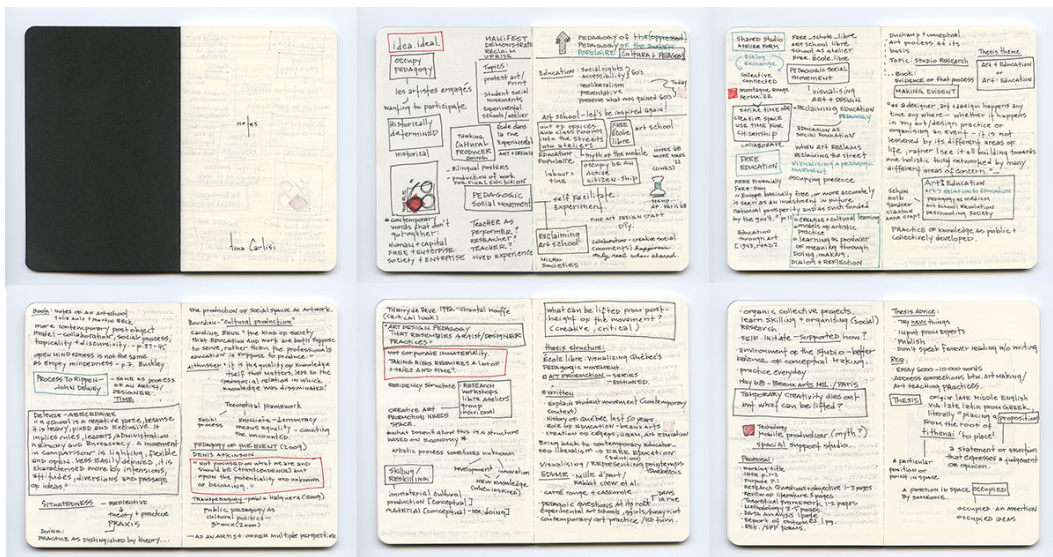 notes
Tina Carlisi
idea.ideal.
OCCUPY
PEDAGOGY
les artistes engagés
wanting to participate
Historically
determined
Historical
* contemporary
words that don't
go together:
Human + capital
FREE + ENTERPRISE
Society + ENTERPRISE
MANIFEST
DEMONSTRATE
RECLAIM
UPRISE
Topics:
protest art/
print
student social
movements
Experimental
schools/atelier
École dans
la rue
Experimental
art + design
Thinking
CULTURAL
PRODUCER
DOING
- Bilingual posters
- production of work
for final exhibition
PEDAGOGIC
Social Movement
TEACHER AS
PERFORMER?
RESEARCHER?
TEACHER?
LIVED EXPERIENCE
PEDAGOGY of the (oppressed)
PEDAGOGY
POPULAIRE
Education: social rights
accessibility 60's
neoliberalism
preventative
preserve what was gained 60's
Today
Art school - let's be inspired again!
out of offices
and classrooms
into the streets
into ateliers
FREE
École
libre
art school
EDUCATION
Populaire
myth of the mobile
labour +
time
occupy be an
active
citizen.ship
self facilitate.
Experiment.
FINE ART DESIGN CRAFT
DIY.
Reclaiming
Art school
collaboration - creative social
(moments) happiness
only real when shared.
MICRO
SOCIETIES
SHARED STUDIO
ATELIER FORM
Dialog
exchange
collective
connected
montagne rouge
STRIKE TIME OR
CREATIVE SPACE
USE TIME FOR
CITIZENSHIP
COLLABORATE.
FREE
EDUCATION
FREE FINANCIALLY
FREE.DOM
"Europe basically free, or more accurately
is seen as an investment in future
national prosperity and as such funded
by the gov't." p.11
Education
through Art
[1943, READ]
Free_schole_libre
art school libre
school atelier
Free.École.libre
PEDAGOGIC SOCIAL
MOVEMENT
VISUALISING
ART + DESIGN
- RECLAIMING EDUCATION
PEDAGOGY
EDUCATION AS
SOCIAL FOUNDATION
WHEN ART RECLAIMS
RECLAIMING THE STREET
VISUALISING A PEDAGOGIC
MOVEMENT
occupying presence
• CREATIVE + cultural learning
models of artistic
practice
• learning as producer
of meaning through
DOING, MAKING,
DIALOG + REFLECTION
Duchamp + conceptual
Art process at its
basis.
Topic: Studio Research
Book:
EVIDENCE OF that process
MAKING EVIDENT
Thesis theme
Art + Education
or
Art: Education
"as a designer, art + design happens any
time any where - whether it happens
in my art/design practice or
organising an event - it is not
lessened by its different areas of
life, rather I see it all building towards
one holistic thing networked by many
different areas of concern."
Art: Education
ART'S RELATION TO EDUCATION
pedagogy as medium
art school revolution
DESCHOOLING SOCIETY
PRACTICE OF KNOWLEDGE AS PUBLIC +
collectively developed.
Book: notes of an art school
more contemporary/post object
model - collaboration, social process,
topicality + discursivity. - p.37-41
OPEN MINDEDNESS is not the same
as empty mindedness - p.2 Buckley
PROCESS TO RIPPEN -
JOHN DEWEY
- SAME AS PROCESS
OF AN ARTIST/
DESIGNER.
TIME
Deleuze - ABECEDAIRE
"A school is a negative force, because
it is heavy, fixed and exclusive. It
implies rules, leaders, administration
hierarchy and bureaucracy. A movement
in comparison is lighter, flexible
and open, less easily defined, it is
characterised more by intensions,
attitudes, diversions and passage
of ideas."
SITUATEDNESS - REFLECTIVE
theory + practice
PRAXIS
Doing.
PRACTICE AS DISTINGUISHED BY THEORY....
the production of social space as artwork.
Bourdieu - "cultural production"
Theoretical framework
Social
process
Rancière - democracy
means equality - counting
the uncounted.
PEDAGOGY OF THE EVENT (2009)
DENIS ATKINSON
"Not focused on what we are and
should be (transcendence) but
upon the potentiality and unknown
of becoming."
Transpedagogy - Pablo Helguera (2009)
Public pedagogy as
cultural politics -
Giroux (2000)
- AS AN ARTIST: OFFER MULTIPLE PERSPECTIVE
Thierry de Duve 1992 - Chantal Mouffe
(critical look)
"ART DESIGN PEDAGOGY
THAT RESEMBLES ARTIST/DESIGNER
PRACTICES"
Not corporate immateriality.
"Taking risks requires a lot of
ethics and time"
RESIDENCY STRUCTURE
RESEARCH
workshops
libre ateliers
group
individual
CREATIVE ART
PRODUCTION NEEDS
SPACE.
WHAT DOESN'T ALLOW THIS IS A STRUCTURE
BASED ON ECONOMY *
artistic process surfaces unknown
Skilling/
Reskilling
development
innovation
NEW KNOWLEDGE
(when inspired)
immaterial cultural
production [conceptual]
material [conceptual - doing]
what can be lifted from post-
height of the movement?
(creative, critical)
thesis structure:
École libre: visualizing Québec's
Pedagogic movement
① ART PROMOTION - SERIES
editioned.
② written
- Explain student movement (contemporary
context)
- History of Quebec last 50 years
- Role of education - beaux arts
creation of cegeps, UQAM, Art Education
Bring back to contemporary educator -
neo.liberalism → FREE EDUCATION
(solution)
Visualising / Representing printemps
Québécois
- carré rouge + casserole
DANS
LA RUE
contemporary art practice / ed turn.
• organic, collective projects,
learn skilling + organising (social)
Research.
• Self-initiate - supported how?
Environment of the studio - better
balance of conceptual. making.
practice everyday
May 68 - Beaux arts MTL. / PARIS
TEMPORARY CREATIVITY DIES OUT
but what can be lifted?
Technology
mobile production (myth?)
Spatial support studio.
Proposal:
- working title
- Purpose p.1
- Research questions + objective 1-3 pages
- Review of literature 5 pages
- Theoretical framework 1-2 pages
- Methodology 3-5 pages.
- Data analysis 1 page
- Report of outcomes 1 pg.
Thesis Advice:
- Try new things
- input from experts
- Publish
- Don't speak forever reading n/o writing
Req:
Essay 6000-10 000 words.
Address connections btw. art making/
Art teaching practices.
THESIS
origin late Middle English
via late latin from GREEK,
literally 'placing a proposition'
from the root of
tithenai 'to place'
a statement or assertion
that expresses a judgment
or opinion.
A particular
position or
point in space.
A position in space occupied
by someone.
occupied: an ASSERTION
occupied ideas